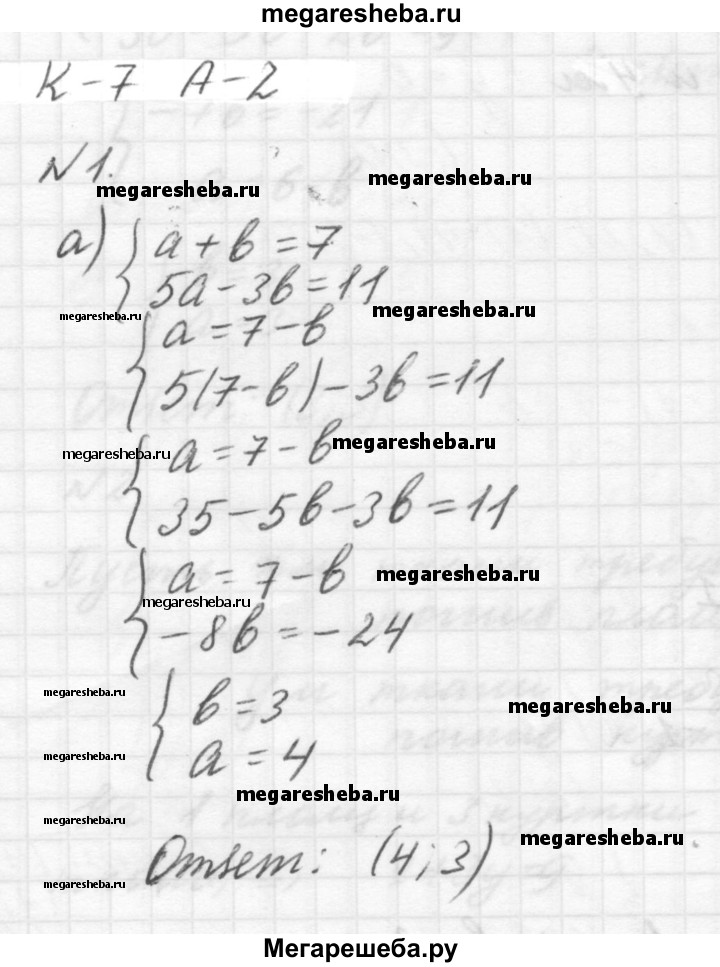 megaresheba.ru
К-7 А-2
№1.
megaresheba.ru
megaresheba.ru
а) { a + b = 7
5a - 3b = 11
megaresheba.ru
megaresheba.ru
{ a = 7 - b
5(7 - b) - 3b = 11
megaresheba.ru
megaresheba.ru
{ a = 7 - b
35 - 5b - 3b = 11
{ a = 7 - b
megaresheba.ru
megaresheba.ru
-8b = -24
megaresheba.ru
megaresheba.ru
{ b = 3
a = 4
megaresheba.ru
megaresheba.ru
megaresheba.ru
megaresheba.ru
Ответ: (4; 3)
megaresheba.ru
Мегарешеба.ру